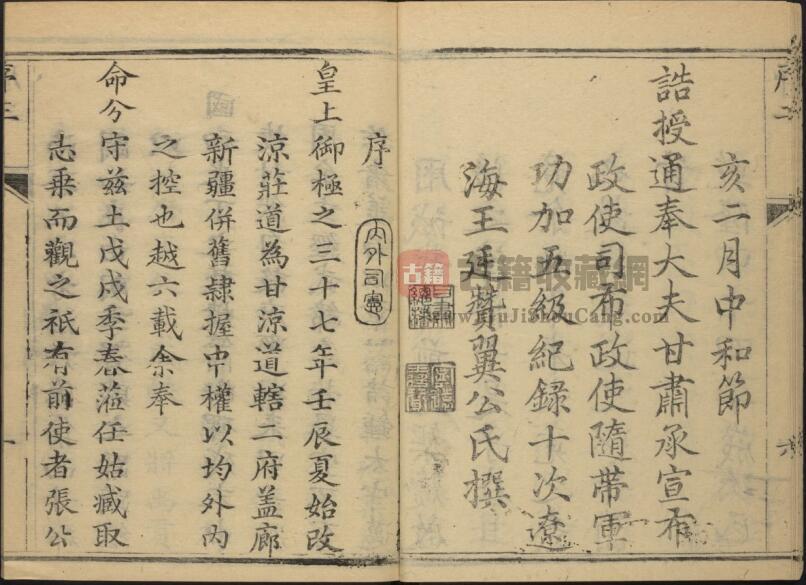 序二
亥二月中和節
誥授通奉大夫甘肅承宣布
政使司布政使隨帶軍
功加五級紀錄十次遼
海王廷贊翼公氏撰
六
序
內外司憲
皇上御極之三十七年壬辰夏始改
涼莊道為甘涼道轄二府蓋廊
新疆併舊隸握中權以均外內
之控也越六載余奉
命分守茲土戊戌季春蒞任姑臧取
志乘而觀之祇有前使者張公
序三
一
古籍
古籍收藏網
www.GuJiShouCang.com